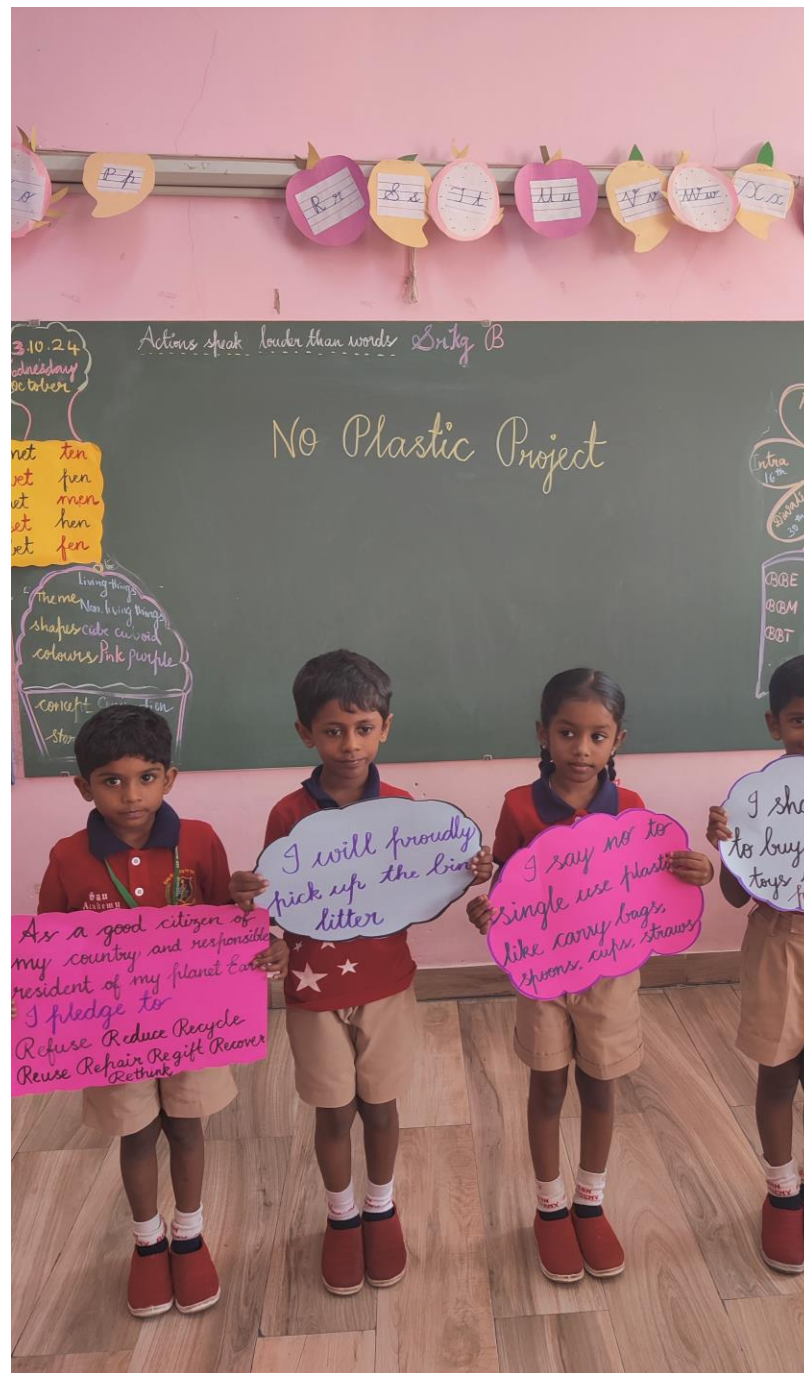 o
P p
R r
S s
T t
U u
V v
W w
X x
3.10.24
ednesday
October
Actions speak louder than words Sr.kg B
No Plastic Project
net ten
vet pen
et men
et hen
vet fen
Living things
Theme Non living things
shapes cube cuboid
colours Pink purple
concept
Intra
16th
30th
BBE
BBM
BBT
San
Academy
As a good citizen of
my country and responsible
resident of my planet Ear
I pledge to
Refuse Reduce Recycle
Reuse Repair Regift Recover
Rethink
I will proudly
pick up the bin
litter
I say no to
single use plasti
like carry bags,
spoons, cups, straws
I sha
to buy
toys